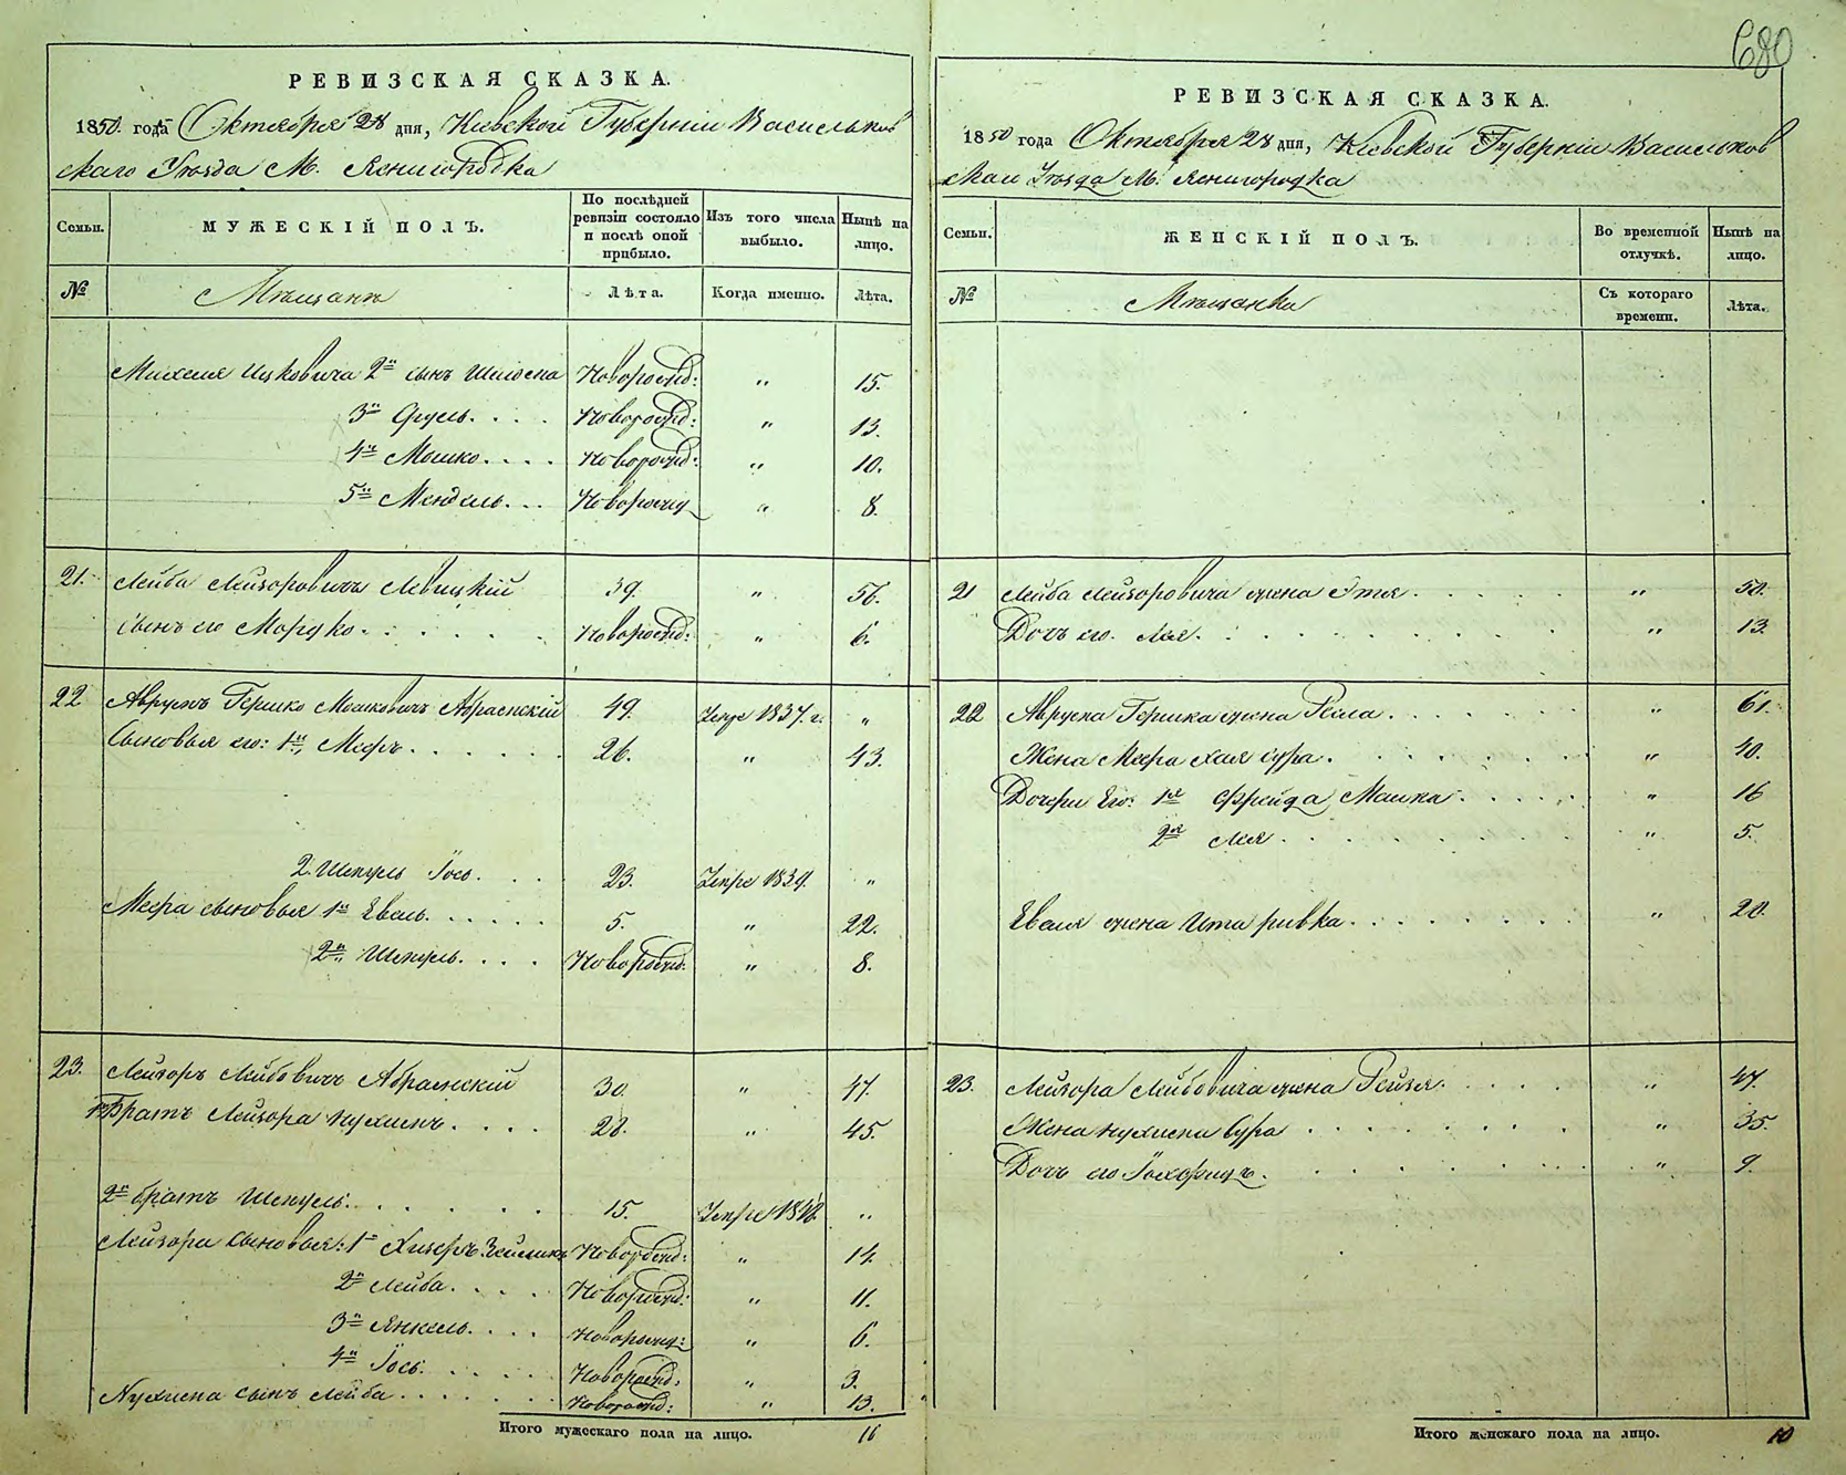 680
РЕВИЗСКАЯ СКАЗКА.
1850. года Октября 28 дня, Кіевской Губерніи Васильков
скаго Уѣзда М. Ясногородка
Семьи.
МУЖЕСКІЙ ПОЛЪ.
По послѣдней ревизіи состояло и послѣ оной прибыло.
Изъ того числа выбыло.
Нынѣ на лицо.
№
Мѣщане
Лѣта.
Когда именно.
Лѣта.
Ицковича 2й сынъ Новорожд: " 15.
3й Сруль.... Новорожд: " 13.
4й Мошко.... Новорожд: " 10.
5й Мендель... Новорожд " 8.
21. Лейба Лейзоровичъ Левицкій 39. " 56.
Сынъ его Мордко...... Новорожд: " 6.
22 Аврумъ Гершко Мошковичъ Абраемскій 49. Умре 1837. г. "
Сыновья его: 1й Мееръ...... 26. " 43.
2. Шмуль Іось... 23. Умре 1839. "
Меера сыновья 1й Евель..... 5. " 22.
2й Шмуль.... Новорожд: " 8.
23. Лейзоръ Лейбовичъ Абраемскій 30. " 47.
Братъ Лейзора Нухимъ.... 28. " 45.
2й братъ Шмуль...... 15. Умре "
Лейзора сыновья: 1й Новорожд: " 14.
2й Лейба.... Новорожд: " 11.
3й Янкель.... Новорожд: " 6.
4й Іось...... Новорожд: " 3.
Нухима сынъ Лейба....... Новорожд: " 13.
Итого мужескаго пола на лицо. 16
РЕВИЗСКАЯ СКАЗКА.
1850 года Октября 28 дня, Кіевской Губерніи Васильков
скаго Уѣзда М. Ясногородка
Семьи.
ЖЕНСКІЙ ПОЛЪ.
Во временной отлучкѣ.
Нынѣ на лицо.
№
Мѣщанки
Съ котораго времени.
Лѣта.
21 Лейба Лейзоровича жена Этя...... " 50.
Дочь его Лея.......... " 13.
22 Аврума Гершка жена Рейла....... " 61.
Жена Меера Хая Сура....... " 40.
Дочери его: 1я Фрейда Малка...... " 16
2я Лея......... " 5.
Евеля жена Ита Ривка........ " 20.
23. Лейзора Лейбовича жена Рейзя..... " 47.
Жена Нухима Сура........ " 35.
Дочь его " 9.
Итого женскаго пола на лицо. 10